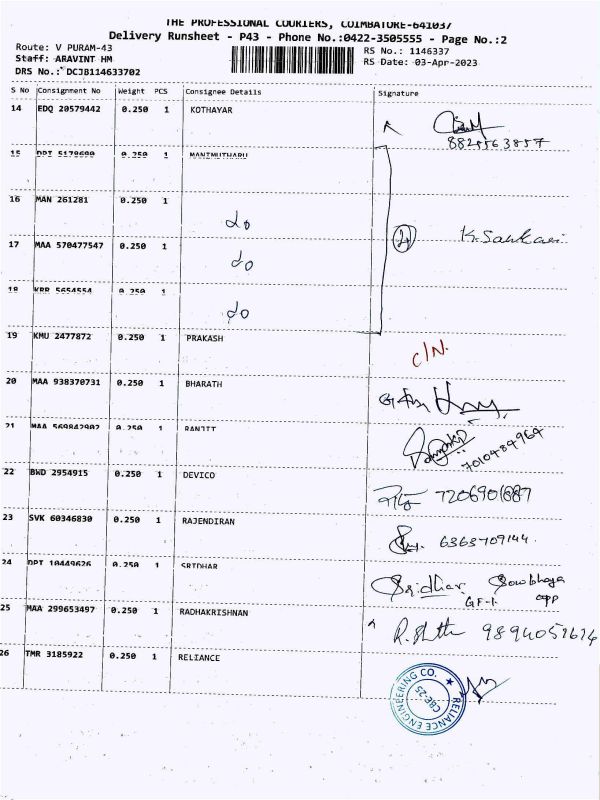 THE PROFESSIONAL COURIERS, COIMBATORE-641037
Delivery Runsheet - P43 - Phone No.:0422-3505555 - Page No.:2
Route: V PURAM-43 RS No.: 1146337
Staff: ARAVINT HM RS Date: 03-Apr-2023
DRS No.: DCJB114633702
S No Consignment No Weight PCS Consignee Details Signature
14 EDQ 20579442 0.250 1 KOTHAYAR
15 DPT 5179699 0.250 1 MANIMUTHARU
16 MAN 261281 0.250 1 do
17 MAA 570477547 0.250 1 do K. Sankari
18 KRR 5654554 0.250 1 do
19 KMU 2477872 0.250 1 PRAKASH C/N.
20 MAA 938370731 0.250 1 BHARATH
21 MAA 569842902 0.250 1 RANJIT 7010484964
22 BWD 2954915 0.250 1 DEVICO 7206901887
23 SVK 60346830 0.250 1 RAJENDIRAN 6363709144.
24 DPT 10449626 0.250 1 SRIDHAR Sridhar Sowbhagya
GF-1. app
25 MAA 299653497 0.250 1 RADHAKRISHNAN
26 TMR 3185922 0.250 1 RELIANCE
RELIANCE ENGINEERING CO.
CBE-25